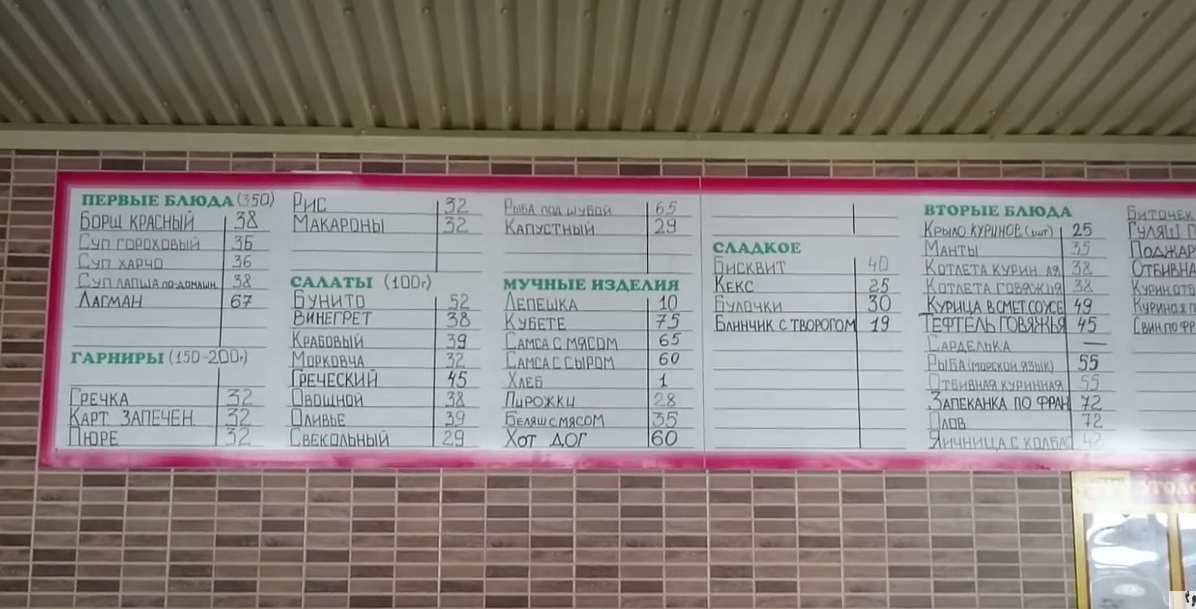 ПЕРВЫЕ БЛЮДА (350)
БОРЩ КРАСНЫЙ 38
СУП ГОРОХОВЫЙ 36
СУП ХАРЧО 36
СУП ЛАПША ПО-ДОМАШН. 38
ЛАГМАН 67
ГАРНИРЫ (150-200г)
ГРЕЧКА 32
КАРТ. ЗАПЕЧЕН. 32
ПЮРЕ 32
РИС 32
МАКАРОНЫ 32
САЛАТЫ (100г)
БУНИТО 52
ВИНЕГРЕТ 38
КРАБОВЫЙ 39
МОРКОВЧА 32
ГРЕЧЕСКИЙ 45
ОВОЩНОЙ 38
ОЛИВЬЕ 39
СВЕКОЛЬНЫЙ 29
РЫБА ПОД ШУБОЙ 65
КАПУСТНЫЙ 29
МУЧНЫЕ ИЗДЕЛИЯ
ЛЕПЕШКА 10
КУБЕТЕ 75
САМСА С МЯСОМ 65
САМСА С СЫРОМ 60
ХЛЕБ 1
ПИРОЖКИ 28
БЕЛЯШ С МЯСОМ 35
ХОТ ДОГ 60
СЛАДКОЕ
БИСКВИТ 40
КЕКС 25
БУЛОЧКИ 30
БЛИНЧИК С ТВОРОГОМ 19
ВТОРЫЕ БЛЮДА
КРЫЛО КУРИНОЕ (1шт) 25
МАНТЫ 35
КОТЛЕТА КУРИН АЯ 38
КОТЛЕТА ГОВЯЖЬЯ 38
КУРИЦА В СМЕТ.СОУСЕ 49
ТЕФТЕЛЬ ГОВЯЖЬЯ 45
САРДЕЛЬКА —
РЫБА (МОРСКОЙ ЯЗЫК) 55
ОТБИВНАЯ КУРИННАЯ 55
ЗАПЕКАНКА ПО ФРАН 72
ПЛОВ 72
ЯИЧНИЦА С КОЛБАС 42
БИТОЧЕК
ГУЛЯШ
ПОДЖАР
ОТБИВНА
КУРИН.ОТБ
КУРИНАЯ
СВИН.ПО ФР